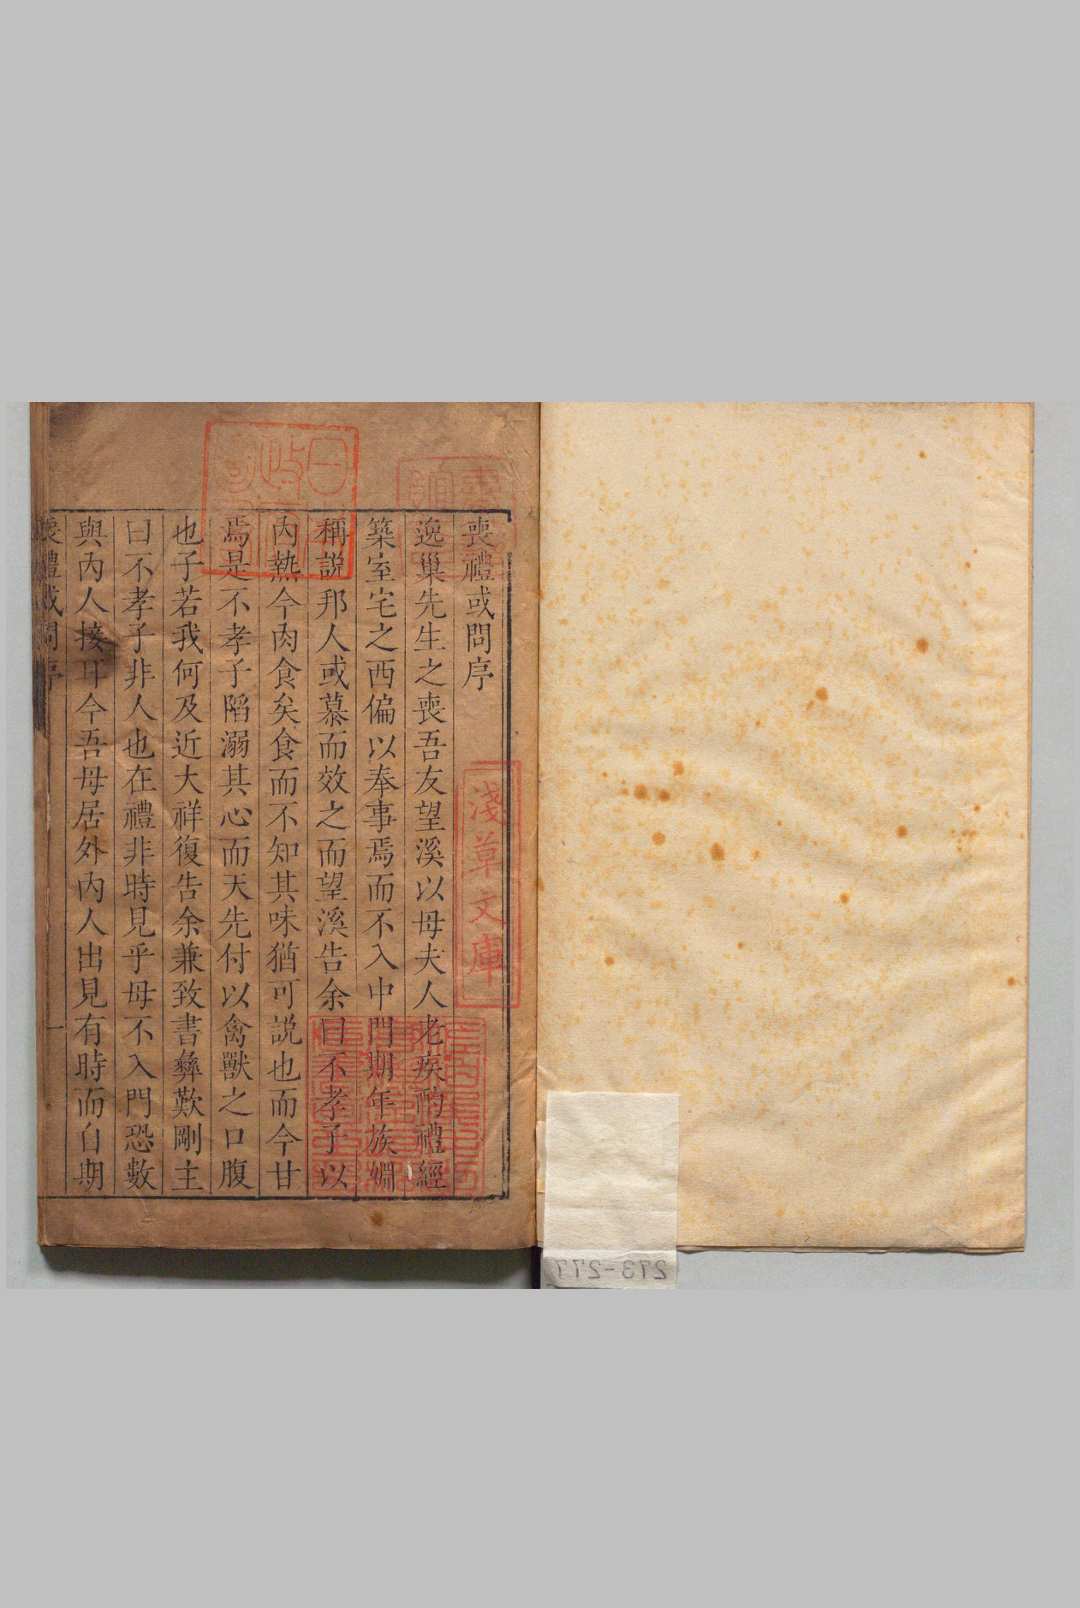 喪禮或問序
逸巢先生之喪吾友望溪以母夫人老疾酌禮經
築室宅之西偏以奉事焉而不入中門期年族婣
稱説邦人或慕而效之而望溪告余曰不孝子以
內熱今肉食矣食而不知其味猶可説也而今甘
焉是不孝子陷溺其心而天先付以禽獸之口腹
也子若我何及近大祥復告余兼致書彝歎剛主
曰不孝子非人也在禮非時見乎母不入門恐數
與內人接耳今吾母居外內人出見有時而自期
喪禮或問序
一
淺草文庫
273-277